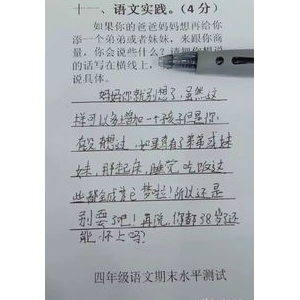 十一、语文实践。(4分)
如果你的爸爸妈妈想再给你
添一个弟弟或者妹妹,来跟你商
量,你会说些什么?请把你想说
的话写在横线上,
说具体。
妈妈你就别想了,虽然这
样可以多增加一个孩子但是你
有没有想过,如果真有了弟弟或妹
妹,那起床,睡觉,吃饭这
些都会成为 梦啦!所以还是
别要了吧!再说,你都38岁了还
能怀上吗?
四年级语文期末水平测试